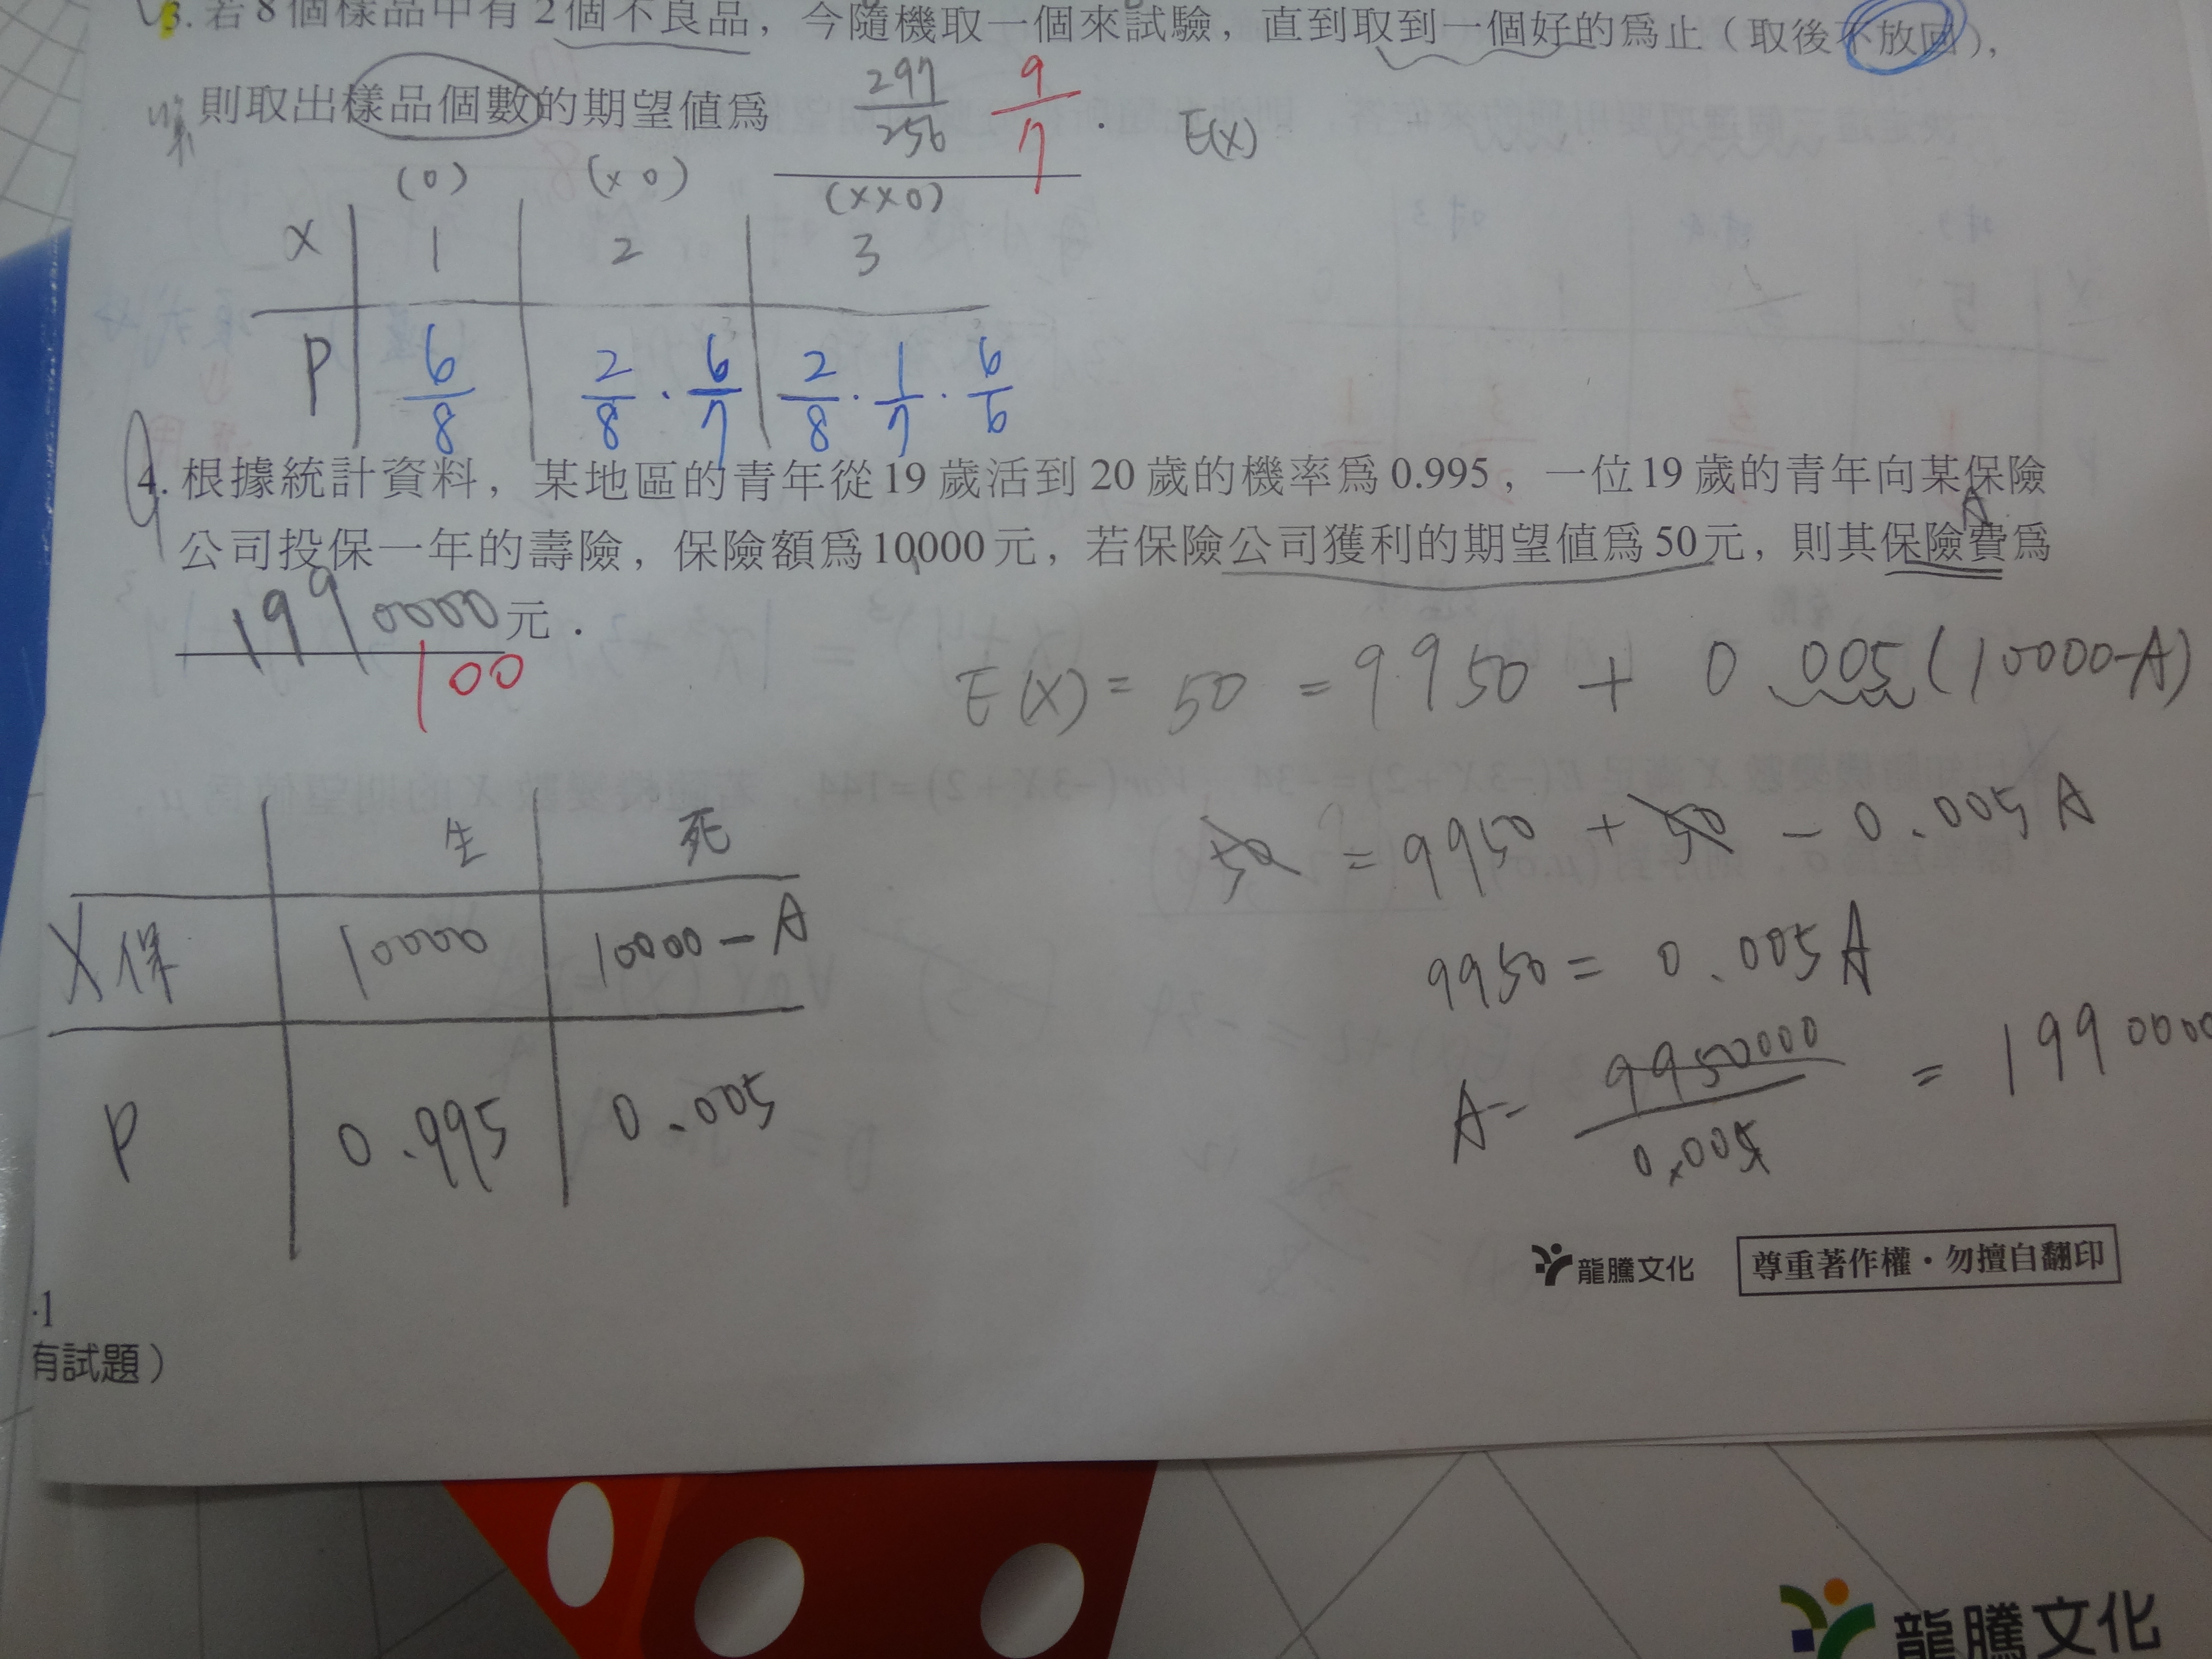 3. 若8個樣品中有2個不良品，今隨機取一個來試驗，直到取到一個好的為止（取後不放回），
則取出樣品個數的期望值為 297/256 9/7 . E(X)
(0) (x0) (xx0)
X 1 2 3
P 6/8 2/8 · 6/7 2/8 · 1/7 · 6/6
4. 根據統計資料，某地區的青年從19歲活到20歲的機率為0.995，一位19歲的青年向某保險
A
公司投保一年的壽險，保險額為10000元，若保險公司獲利的期望值為50元，則其保險費為
1990000元．
100
E(X) = 50 = 9950 + 0.005(10000-A)
生 死
50 = 9950 + 50 - 0.005A
X保 10000 10000-A
9950 = 0.005A
P 0.995 0.005
A= 9950000/0.005 = 1990000
龍騰文化 尊重著作權・勿擅自翻印
·1
有試題）
龍騰文化